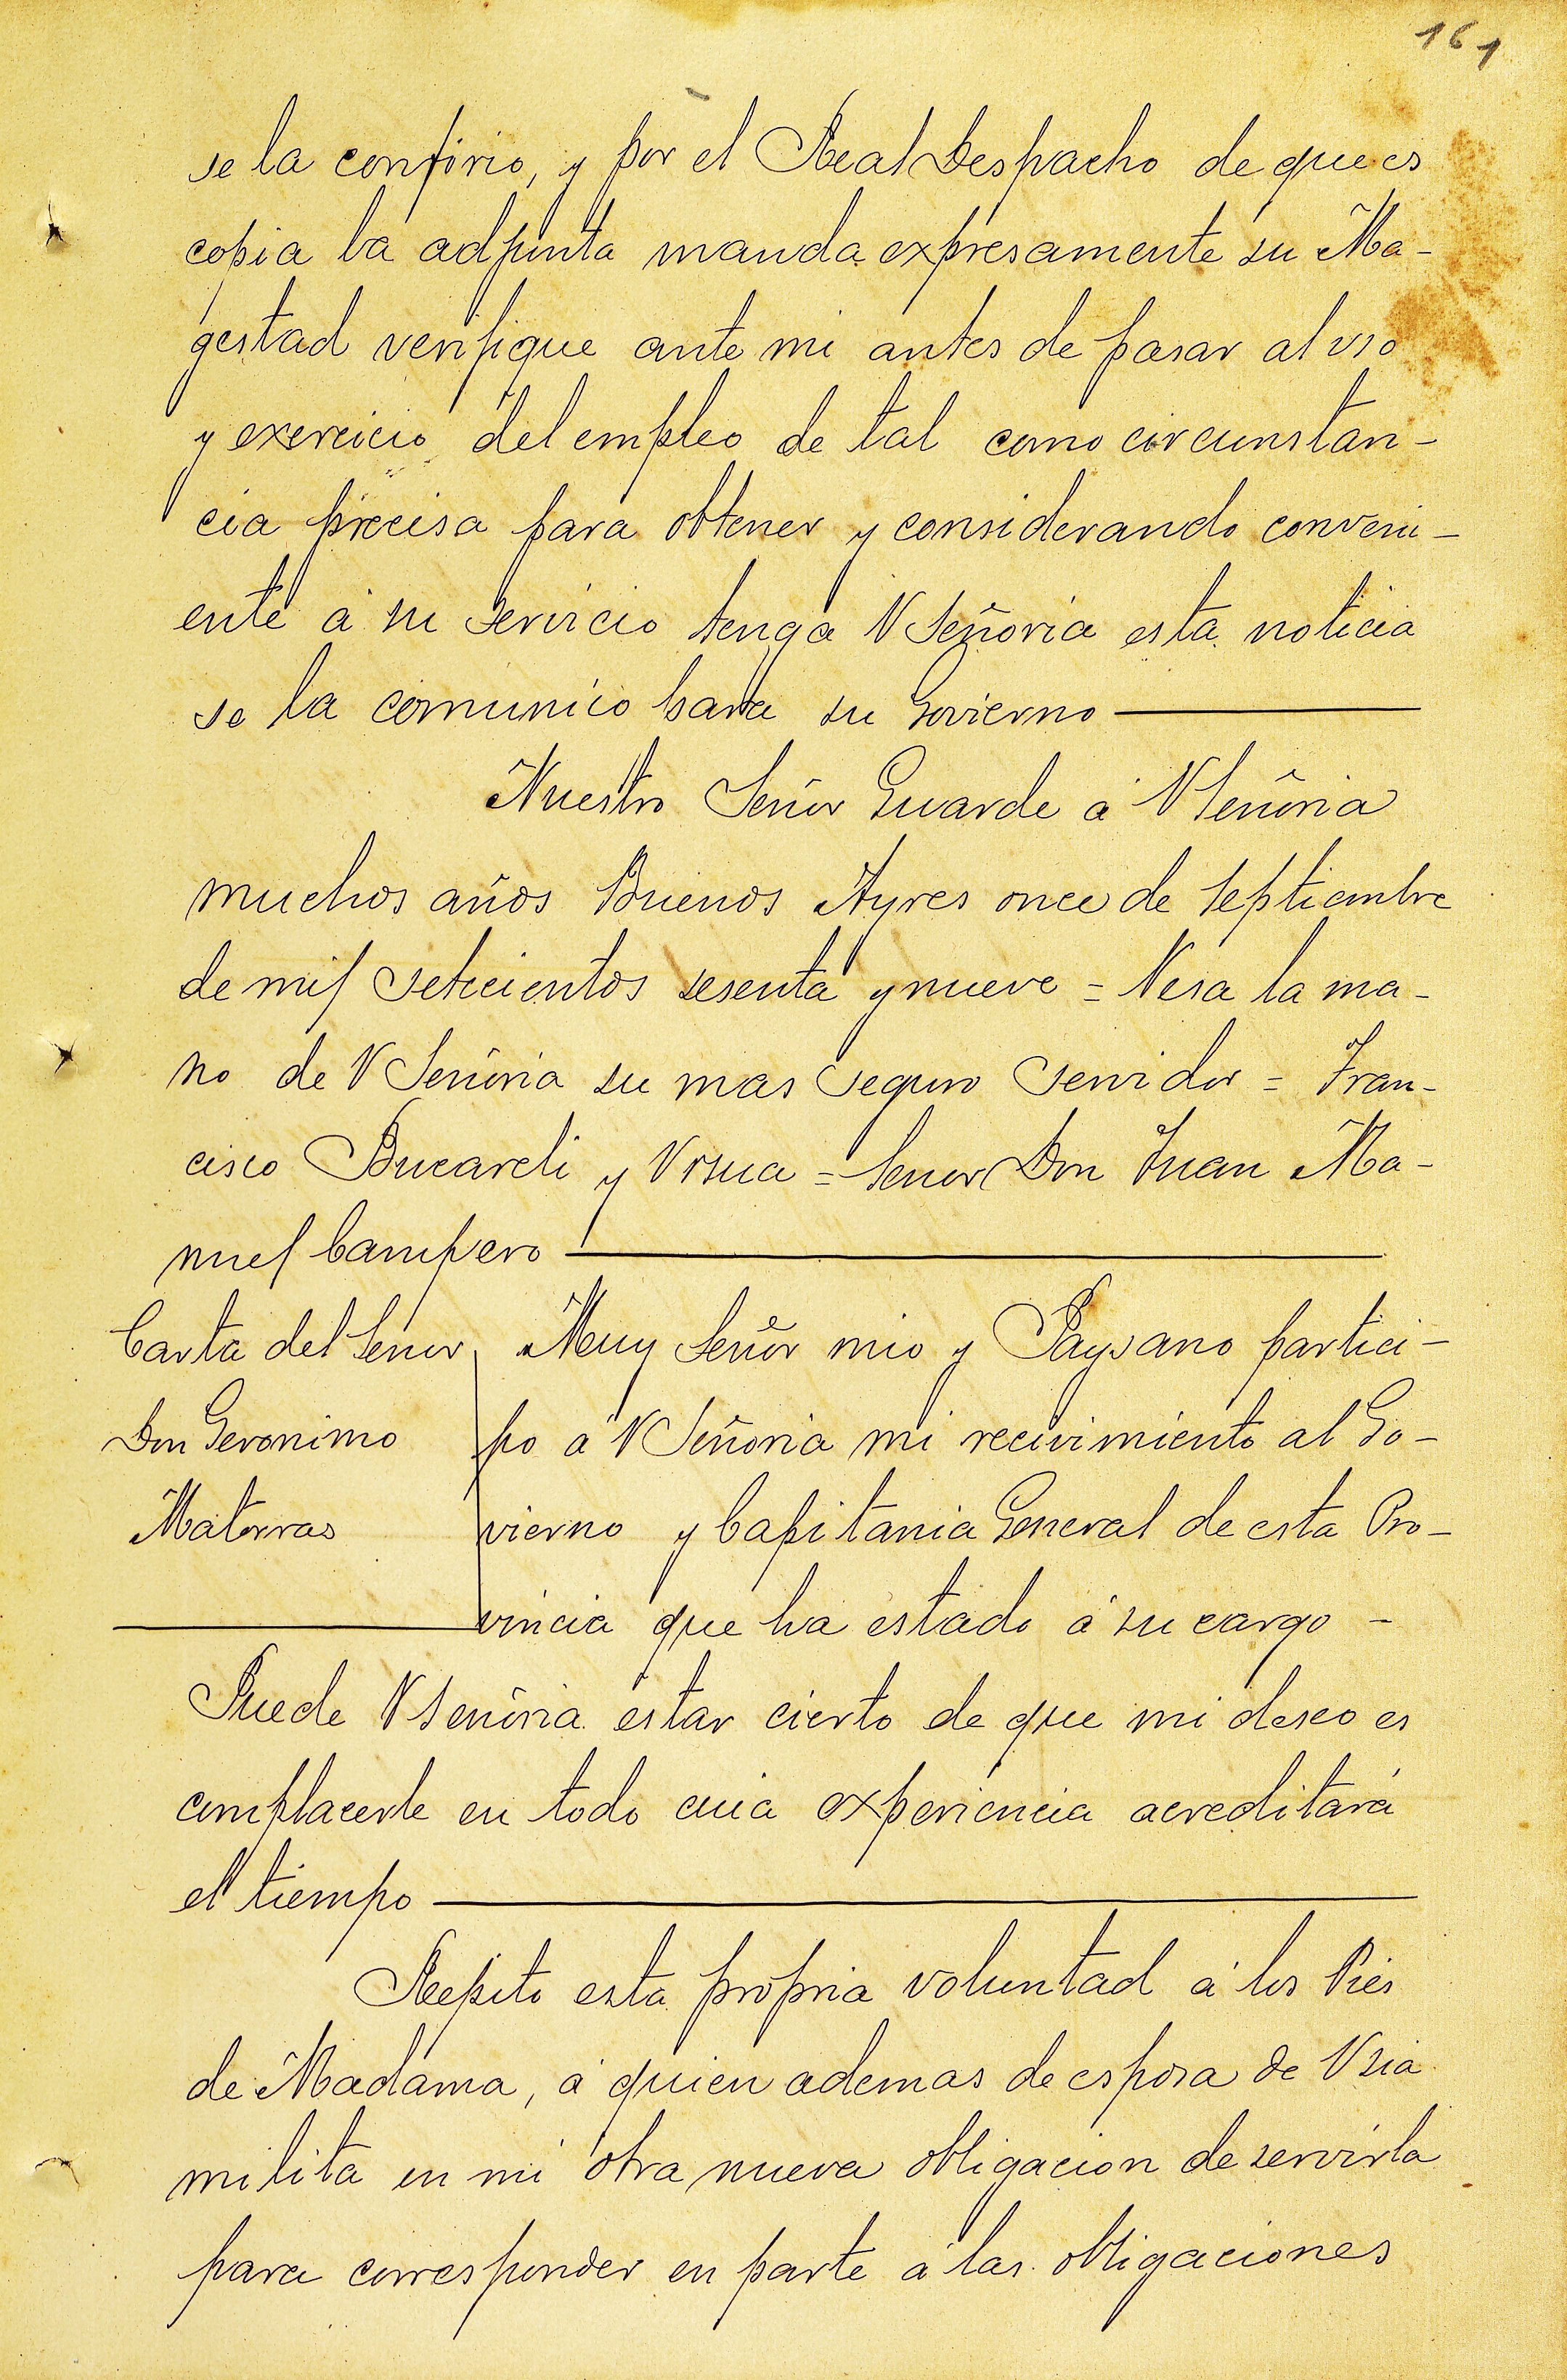 161
se la confirio, y por el Real Despacho de que es
copia la adjunta manda expresamente su Ma-
gestad verifique ante mi antes de pasar al uso
y exercicio del empleo de tal como circunstan-
cia precisa para obtener y considerando conveni-
ente á su servicio tenga V Señoria esta noticia
se la comunico para su Govierno
Nuestro Señor Guarde á V Señoria
muchos años Buenos Ayres once de Septiembre
de mil setecientos sesenta y nueve = Vesa la ma-
no de V Señoria su mas seguro servidor = Fran-
cisco Bucareli y Vrsua = Señor Don Juan Ma-
nuel Campero
Carta del Señor
Don Geronimo
Matorras
Muy Señor mio y Paysano partici-
po á V Señoria mi recivimiento al Go-
vierno y Capitania General de esta Pro-
vincia que ha estado á su cargo -
Puede V Señoria estar cierto de que mi deseo es
complacerle en todo cuia experiencia acreditará
el tiempo
Repito esta propria voluntad á los Pies
de Madama, á quien ademas de esposa de Vsia
milita en mi otra nueva obligacion de servirla
para corresponder en parte á las obligaciones